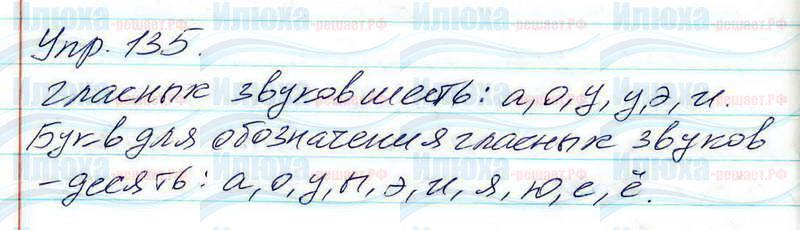 Упр. 135.
Гласных звуков шесть: а, о, у, у, э, и.
Букв для обозначения гласных звуков
– десять: а, о, у, ы, э, и, я, ю, е, ё.